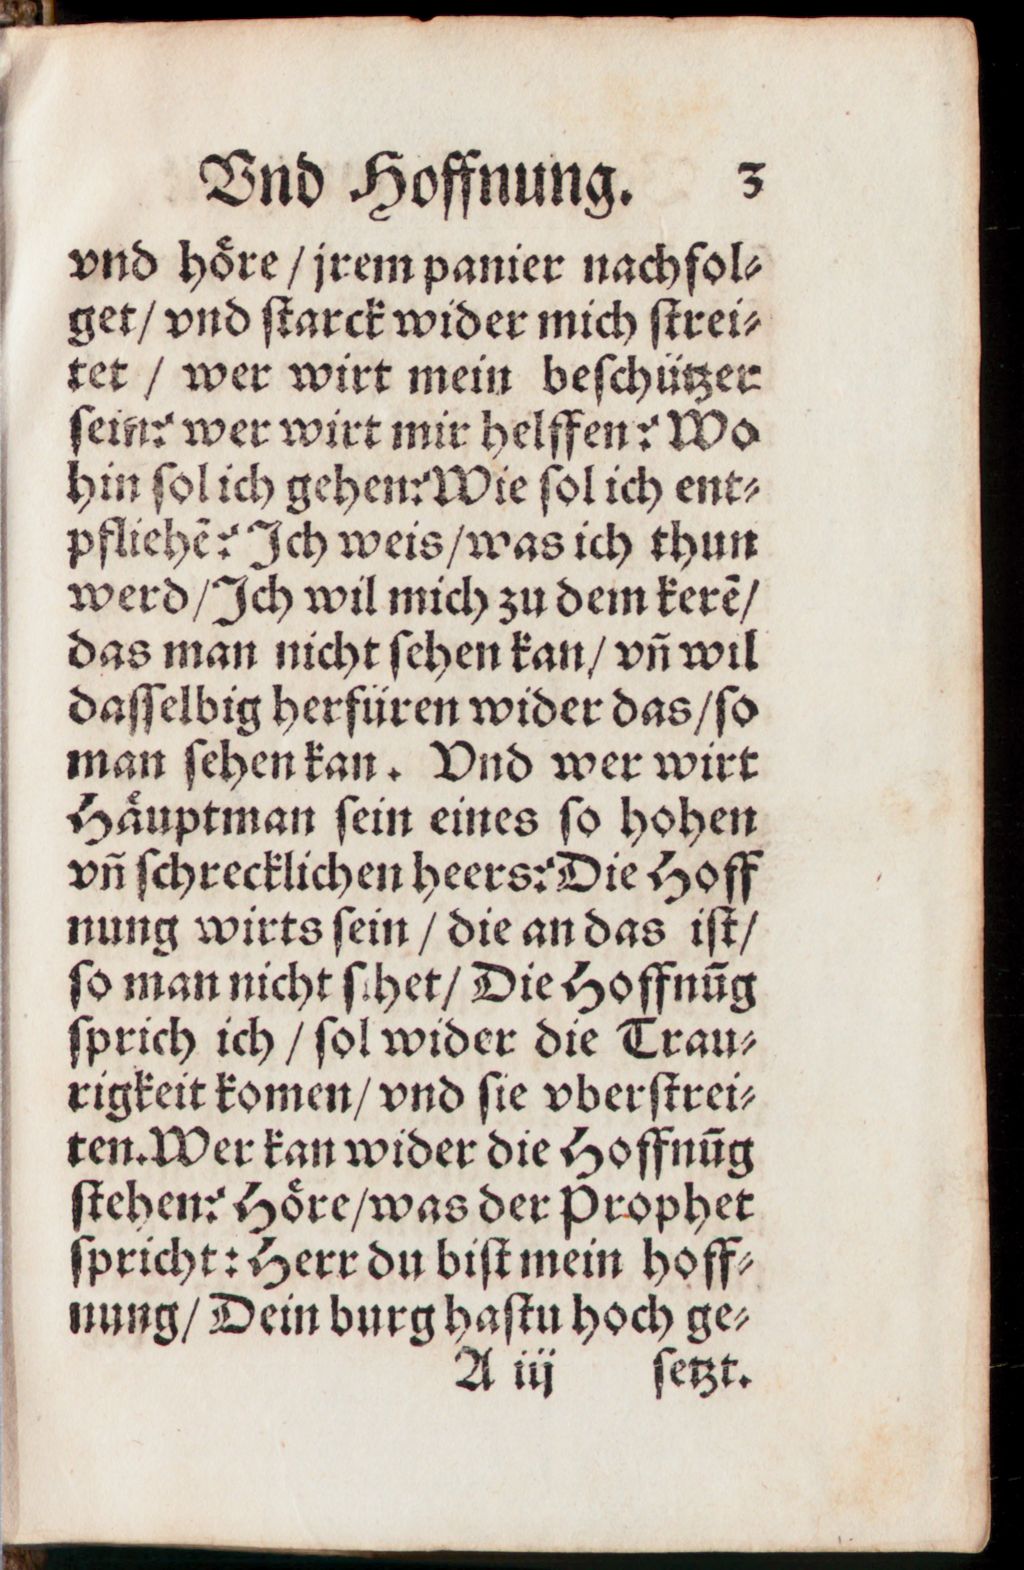 Vnd Hoffnung. 3
vnd hoͤre / jrem panier nachfol⸗
get / vnd starck wider mich strei⸗
tet / wer wirt mein beschützer
sein? wer wirt mir helffen? Wo
hin sol ich gehen? Wie sol ich ent⸗
pfliehẽ? Ich weis / was ich thun
werd / Ich wil mich zu dem kerẽ /
das man nicht sehen kan / vñ wil
dasselbig herfüren wider das / so
man sehen kan. Vnd wer wirt
Haͤuptman sein eines so hohen
vñ schrecklichen heers? Die Hoff
nung wirts sein / die an das ist /
so man nicht sihet / Die Hoffnūg
sprich ich / sol wider die Trau⸗
rigkeit komen / vnd sie vberstrei⸗
ten. Wer kan wider die Hoffnūg
stehen? Hoͤre / was der Prophet
spricht: Herr du bist mein hoff⸗
nung / Dein burg hastu hoch ge⸗
A iij setzt.